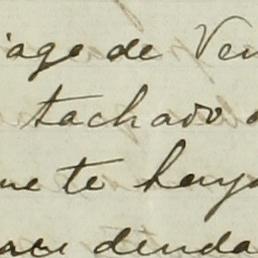 iage de Ven
tachado
ue te haya
deuda